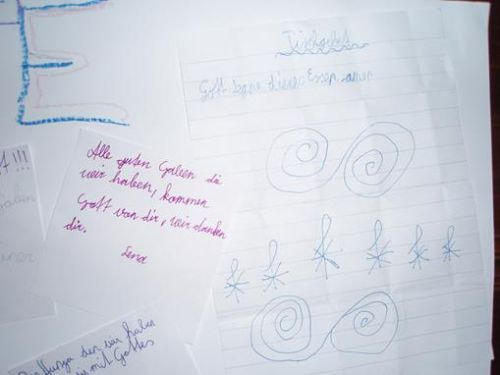 E
Tischgebet
Gott segne dieses Essen. amen
!!!
Alle guten Gaben die
wir haben, kommen
Gott von dir, wir danken
dir.
Lena
den wir haben
mit Gottes